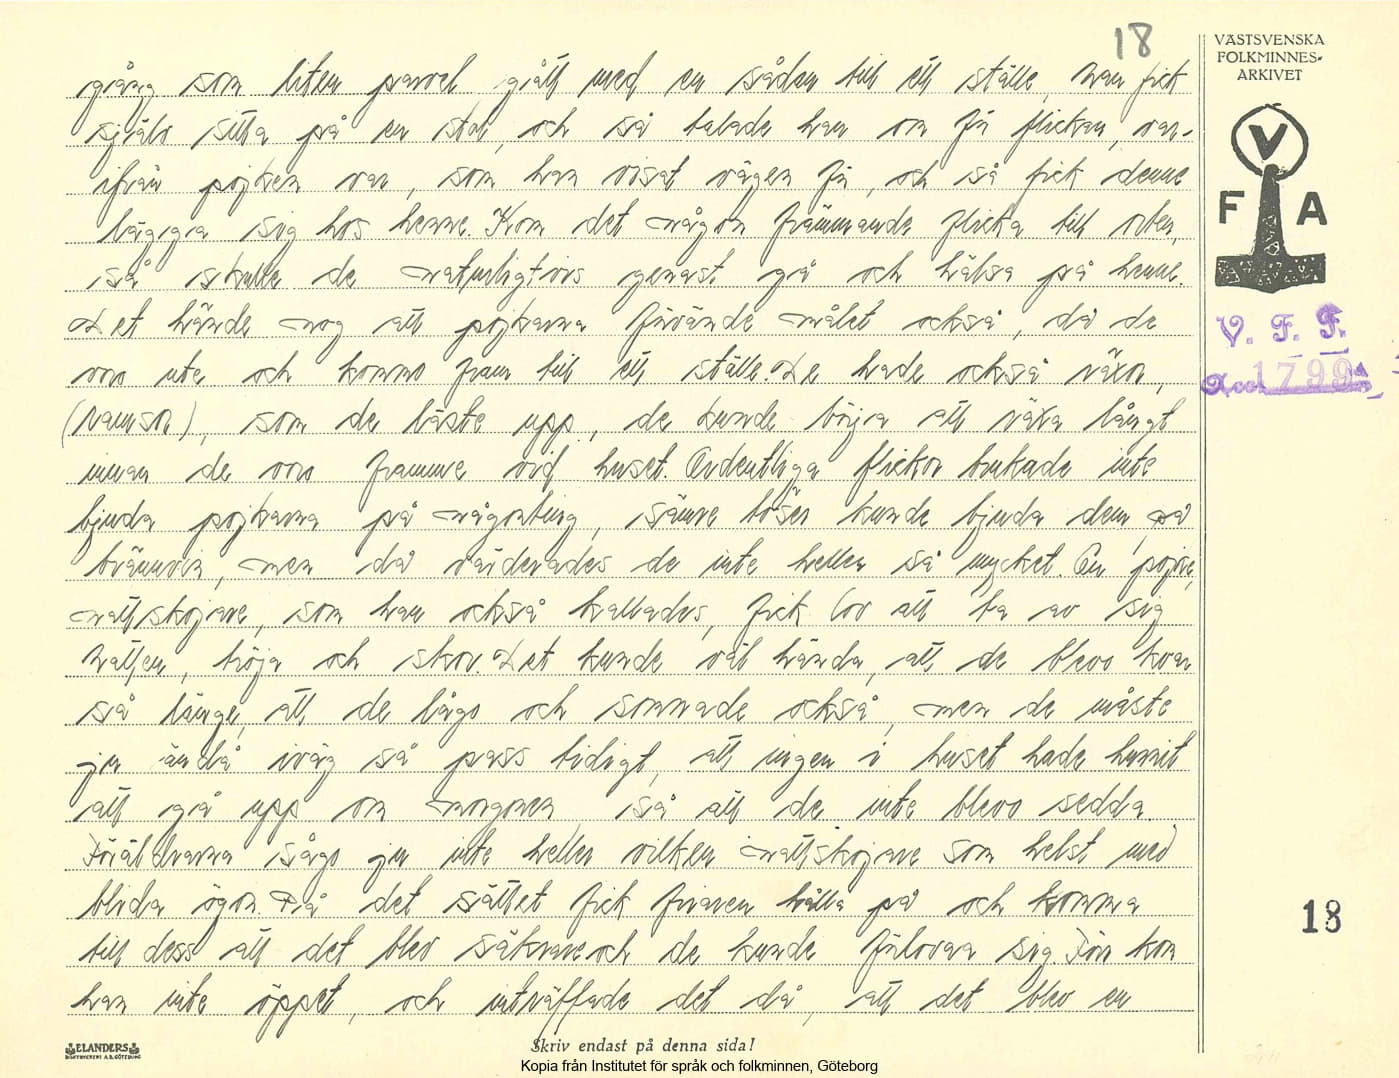 18
VÄSTSVENSKA
FOLKMINNES-
ARKIVET
V
F A
V. F. F.
Acc. 1799
gång som liten parvel gått med en sådan till ett ställe, han fick
själv sitta på en stol, och så talade han om för flickan, var-
ifrån pojken var, som han visat vägen för, och så fick denne
lägga sig hos henne. Kom det någon främmande flicka till orten,
så skulle de naturligtvis genast gå och hälsa på henne.
Det hände nog att pojkarna förvände målet också, då de
voro ute och kommo fram till ett ställe. De hade också
(ramsor), som de läste upp, de kunde börja att läxa långt
innan de voro framme vid huset. Ordentliga flickor brukade inte
bjuda pojkarna på någonting, sämre töser kunde bjuda dem på
brännvin, men då värderades de inte heller så mycket. En pojke,
nattskojare, som han också kallades, fick lov att ta av sig
västen, tröja och skor. Det kunde väl hända, att de blevo kvar
så länge, att de lågo och somnade också, men de måste
ju ändå iväg så pass tidigt, att ingen i huset hade hunnit
att gå upp om morgonen så att de inte blevo sedda.
Föräldrarna sågo ju inte heller vilken nattskojare som helst med
blida ögon. På det sättet fick friaren hålla på och komma
till dess att det blev säkrare och de kunde förlova sig. Förr kom
han inte öppet, och inträffade det då, att det blev en
18
ELANDERS
Skriv endast på denna sida!
Kopia från Institutet för språk och folkminnen, Göteborg